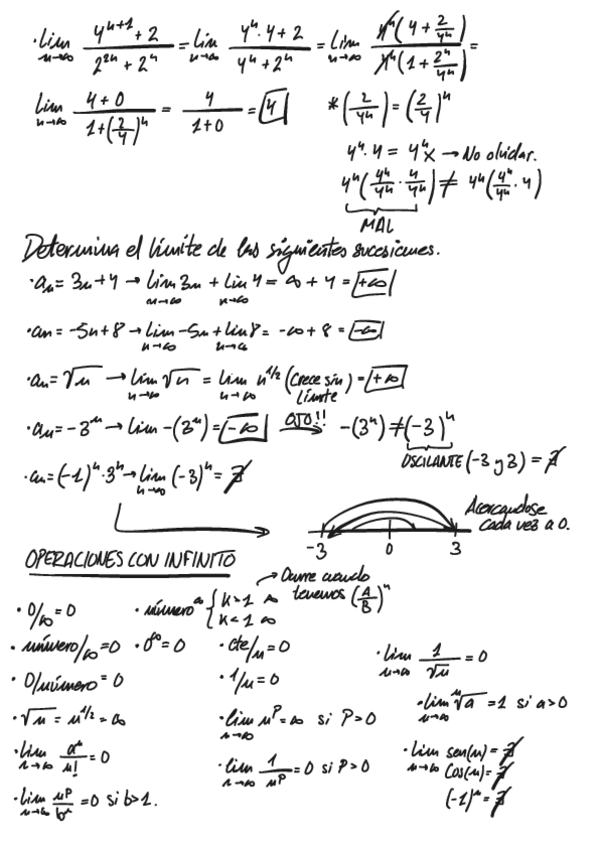 · lim n→∞ (4^(n+1) + 2)/(2^(2n) + 2^n) = lim n→∞ (4^n · 4 + 2)/(4^n + 2^n) = lim n→∞ (4^n(4 + 2/4^n))/(4^n(1 + 2^n/4^n)) =
lim n→∞ (4 + 0)/(1 + (2/4)^n) = 4/(1 + 0) = 4   * (2/4^n) = (2/4)^n
4^n · 4 = 4^n x → No olvidar.
4^n(4^n/4^n · 4/4^n) ≠ 4^n(4^n/4^n · 4)
MAL
Determina el límite de las siguientes sucesiones.
· an = 3n + 4 → lim n→∞ 3n + lim n→∞ 4 = ∞ + 4 = +∞
· an = -5n + 8 → lim n→∞ -5n + lim n→∞ 8 = -∞ + 8 = -∞
· an = √n → lim n→∞ √n = lim n→∞ n^(1/2) (crece sin límite) = +∞
· an = -3^n → lim -(3^n) = -∞ OJO!! → -(3^n) ≠ (-3)^n
OSCILANTE (-3 y 3) = ∄
· an = (-1)^n · 3^n → lim n→∞ (-3)^n = ∄
Acercandose
cada vez a 0.
-3 0 3
OPERACIONES CON INFINITO
→ Ocurre cuando
tenemos (A/B)^n
· 0/∞ = 0   · número^∞ { K>1 ∞
K<1 ∞
· número/∞ = 0   · 0^∞ = 0   · cte/n = 0   · lim n→∞ 1/√n = 0
· 0/número = 0   · 1/n = 0   · lim n→∞ ⁿ√a = 1 si a>0
· √n = n^(1/2) = ∞   · lim n→∞ n^P = ∞ si P>0
· lim n→∞ a^n/n! = 0   · lim n→∞ 1/n^P = 0 si P>0   · lim n→∞ sen(n) = ∄
cos(n) = ∄
· lim n→∞ n^P/b^n = 0 si b>1.   (-1)^n = ∄